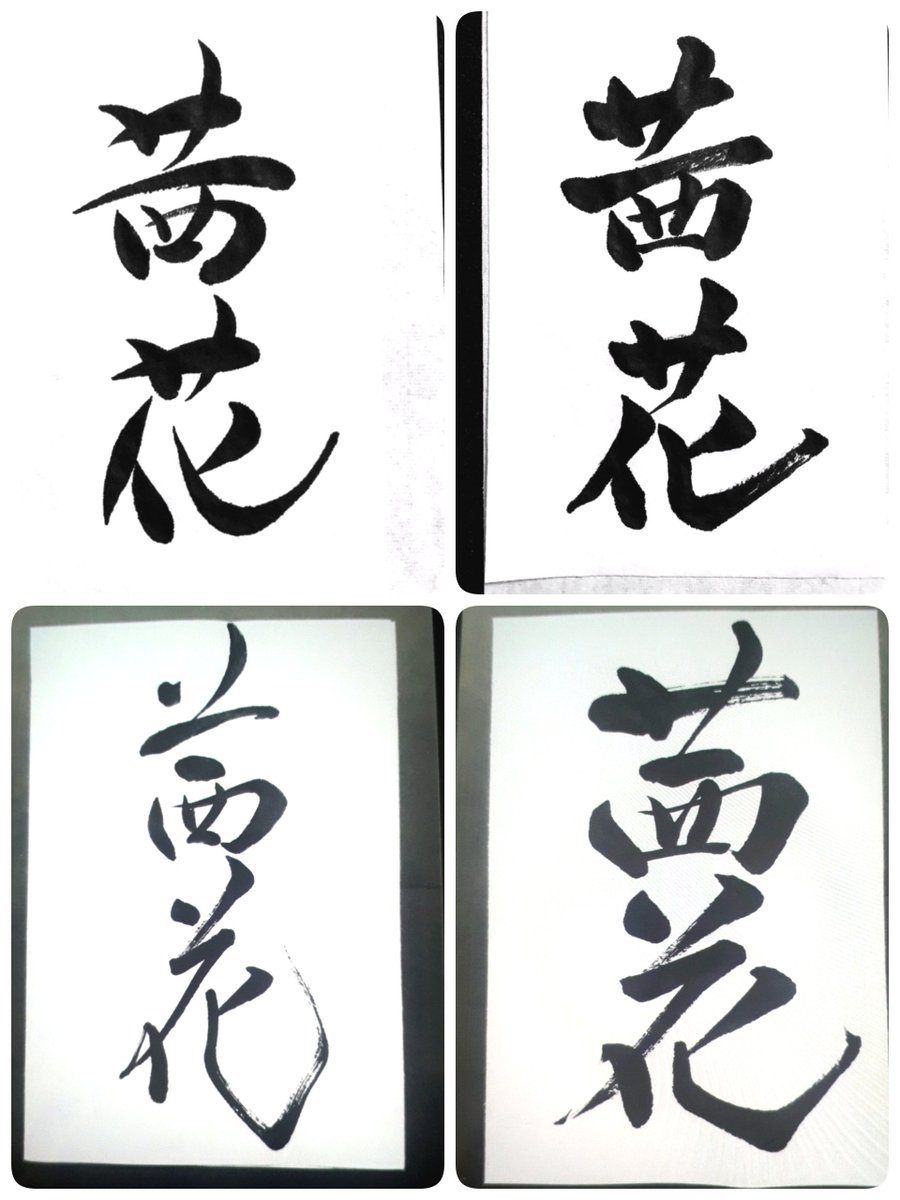 茜花
茜花
茜花
茜花